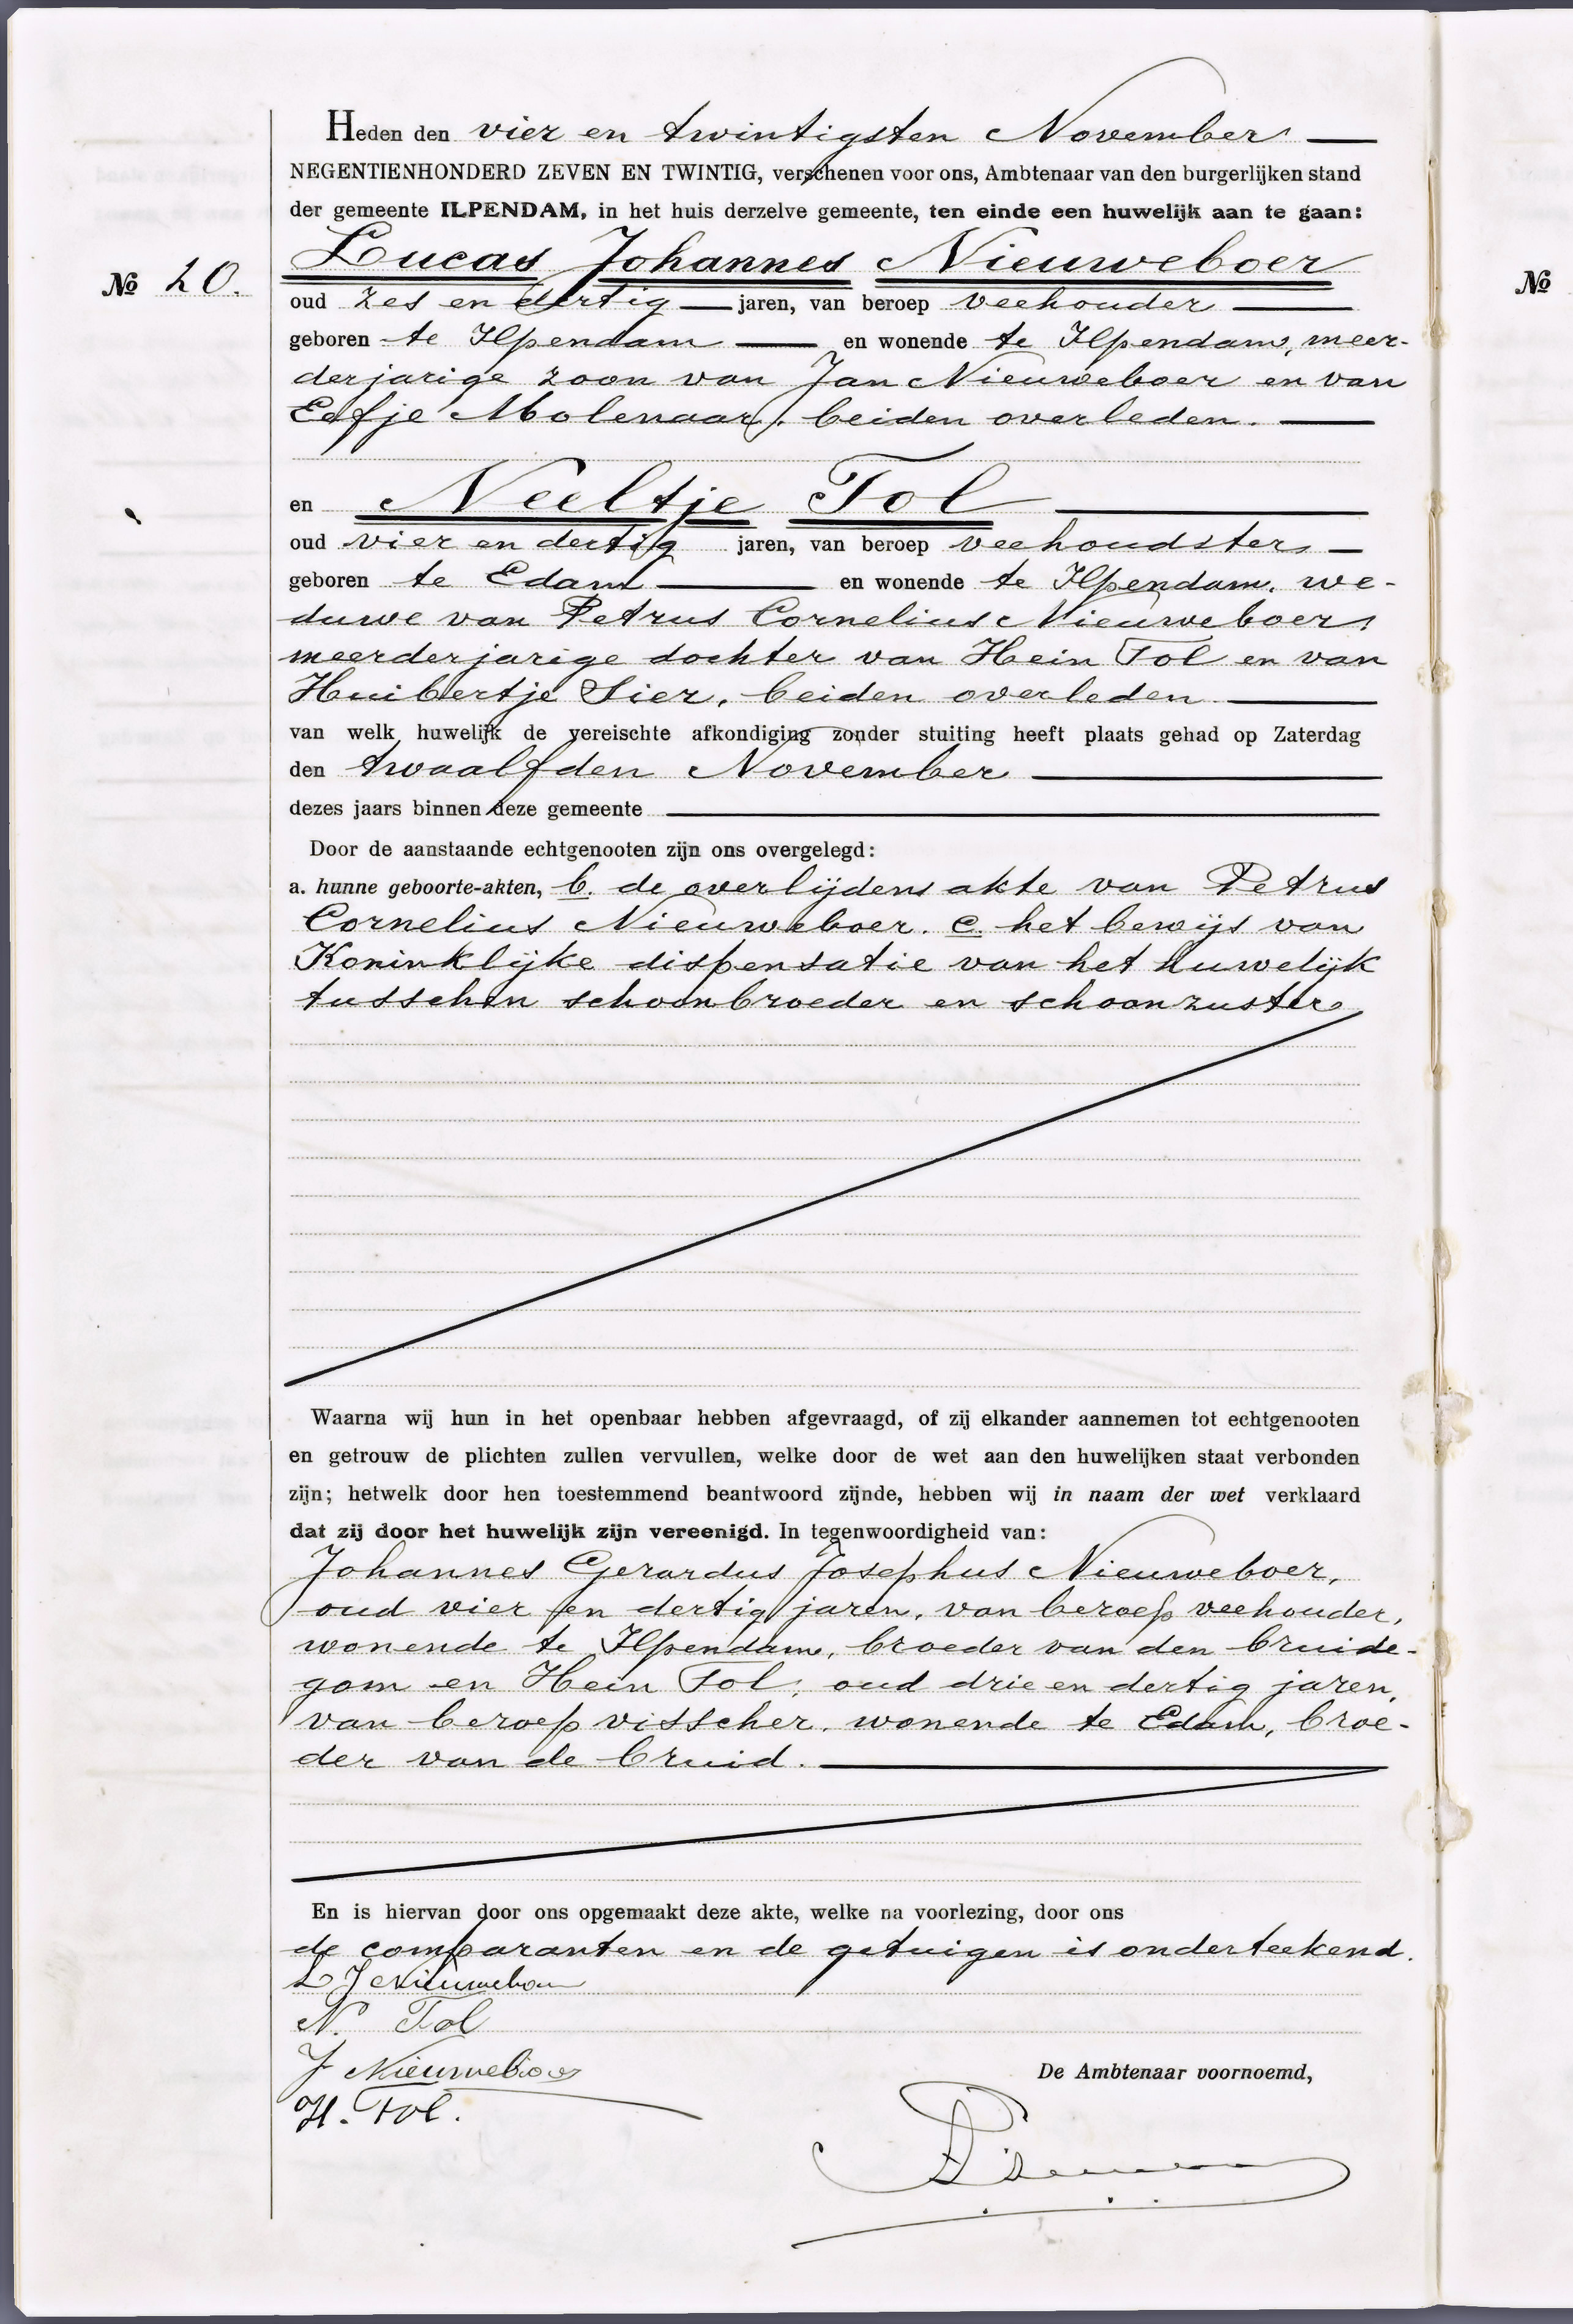 Heden den vier en twintigsten November
NEGENTIENHONDERD ZEVEN EN TWINTIG, verschenen voor ons, Ambtenaar van den burgerlijken stand
der gemeente ILPENDAM, in het huis derzelve gemeente, ten einde een huwelijk aan te gaan:
No 20.
Lucas Johannes Nieuweboer
oud zes en dertig jaren, van beroep veehouder
geboren te Ilpendam en wonende te Ilpendam, meer-
derjarige zoon van Jan Nieuweboer en van
Eefje Molenaar, beiden overleden.
en Neeltje Tol
oud vier en dertig jaren, van beroep veehoudster
geboren te Edam en wonende te Ilpendam, we-
duwe van Petrus Cornelius Nieuweboer,
meerderjarige dochter van Hein Tol en van
Huibertje Sier, beiden overleden
van welk huwelijk de vereischte afkondiging zonder stuiting heeft plaats gehad op Zaterdag
den twaalfden November
dezes jaars binnen deze gemeente
Door de aanstaande echtgenooten zijn ons overgelegd:
a. hunne geboorte-akten, b. de overlijdens akte van Petrus
Cornelius Nieuweboer. c. het bewijs van
Koninklijke dispensatie van het huwelijk
tusschen schoonbroeder en schoonzuster
Waarna wij hun in het openbaar hebben afgevraagd, of zij elkander aannemen tot echtgenooten
en getrouw de plichten zullen vervullen, welke door de wet aan den huwelijken staat verbonden
zijn; hetwelk door hen toestemmend beantwoord zijnde, hebben wij in naam der wet verklaard
dat zij door het huwelijk zijn vereenigd. In tegenwoordigheid van:
Johannes Gerardus Josephus Nieuweboer,
oud vier en dertig jaren, van beroep veehouder,
wonende te Ilpendam, broeder van den bruide-
gom en Hein Tol, oud drie en dertig jaren,
van beroep visscher, wonende te Edam, broe-
der van de bruid.
En is hiervan door ons opgemaakt deze akte, welke na voorlezing, door ons
de comparanten en de getuigen is onderteekend.
L J Nieuweboer
N. Tol
J Nieuweboer
H. Tol.
De Ambtenaar voornoemd,
No